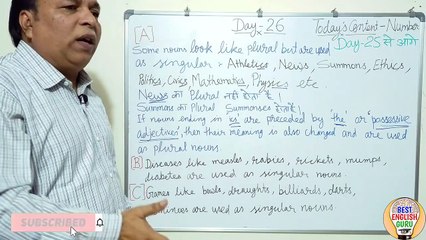 [A]
Day-26
Today's Content - Number
Day-25 से आगे
Some nouns look like plural but are used
as singular - Athletics, News, Summons, Ethics,
Politics, Civics, Mathematics, Physics etc
News का Plural नहीं होता है।
Summons का Plural Summonses होता है।
If nouns ending in 'ics' are preceded by 'the' or 'possessive
adjectives', then their meaning is also changed and are used
as plural nouns.
[B] Diseases like measles, rabies, rickets, mumps,
diabetes are used as singular nouns.
[C] Games like bowls, draughts, billiards, darts,
are used as singular nouns.
SUBSCRIBED
BEST
ENGLISH
GURU